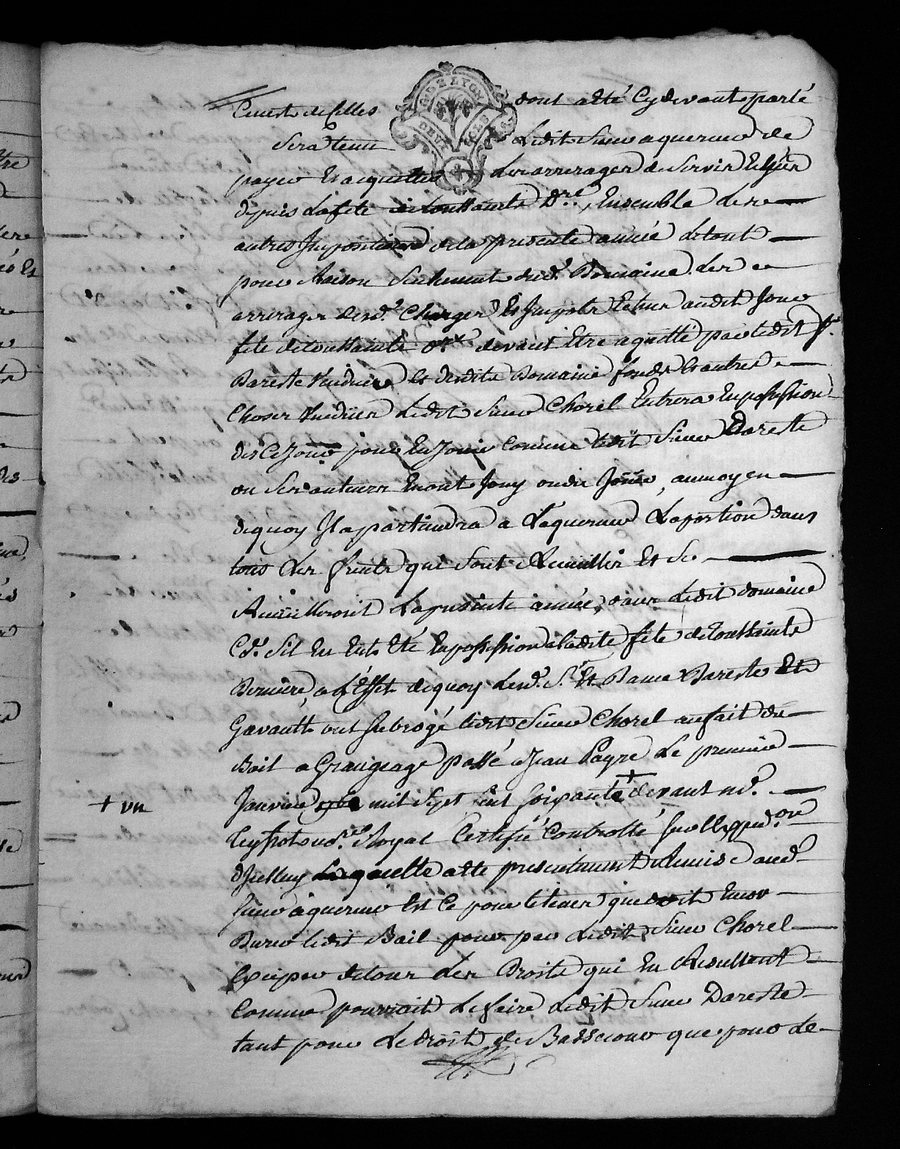 G. DE LYON
DEUX SOLS
de celles dont a été Cy devant parlé
Sera tenu Ledit Sieur aquereur de
payer Et aquitter Les arrerages de Servis
depuis La fete de toussaints D.re, Ensemble Les
autres Impositions de la presente année Le tout
pour Raison Seulement dud. Domaine Les
arrerages desd. Charges Et Impots Echus audit Jour
fete de toussaints devant Etre aquitté par Ledit S.r
Dareste Vendeur Et desdits Domaine fonds Et autres
Choses Vendues Ledit Sieur Chorel Entrera En possession
des Ce Jour pour En Jouir Comme Ledit Sieur Dareste
ou Ses auteurs En ont Jouy ou du Jouir, au moyen
de quoy Il apartiendra a L'aquereur La portion dans
tous Les fruits qui Sont a Recuillir Et Se
Recuilliront La presente année, dans Ledit domaine
Co.e Sil En Eut Eté En possession a Ladite fete de toussaints
Derniere, a L'Effet de quoy Lesd. S.r Et Dame Dareste Et
Gavault ont Subrogé Ledit Sieur Chorel au fait du
Bail a Grangeage passé a Jean Payre Le premier
Janvier mil Sept Cent Soixante + devant
+ un
Royal Certifié Controllé
laquelle a eté presentement Remise aud.
Sieur aquereur Et Ce pour Le tenir
Ledit Bail pour par Ledit Sieur Chorel
Exciper de tous Les Droits qui En Resultent
Comme pourrait Le faire Ledit Sieur Dareste
tant pour Le droit de que pour Le